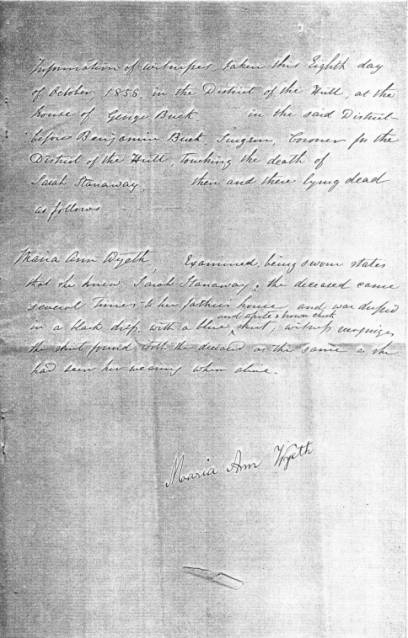 Information of witnesses taken this Eighth day
of October 1858 in the District of the Hutt, at the
house of George Buck in the said District
before Benjamin Buck, Surgeon, Coroner for the
District of the Hutt, touching the death of
Sarah Stanaway, then and there lying dead
as follows
Maria Ann Wyeth, Examined, being sworn states
that she knew Sarah Stanaway, the deceased came
several times to her father's house and was dressed
in a black dress, with a blue shirt, witness recognizes
the shirt found with the deceased as the same as she
had seen her wearing when alive.
Maria Ann Wyeth